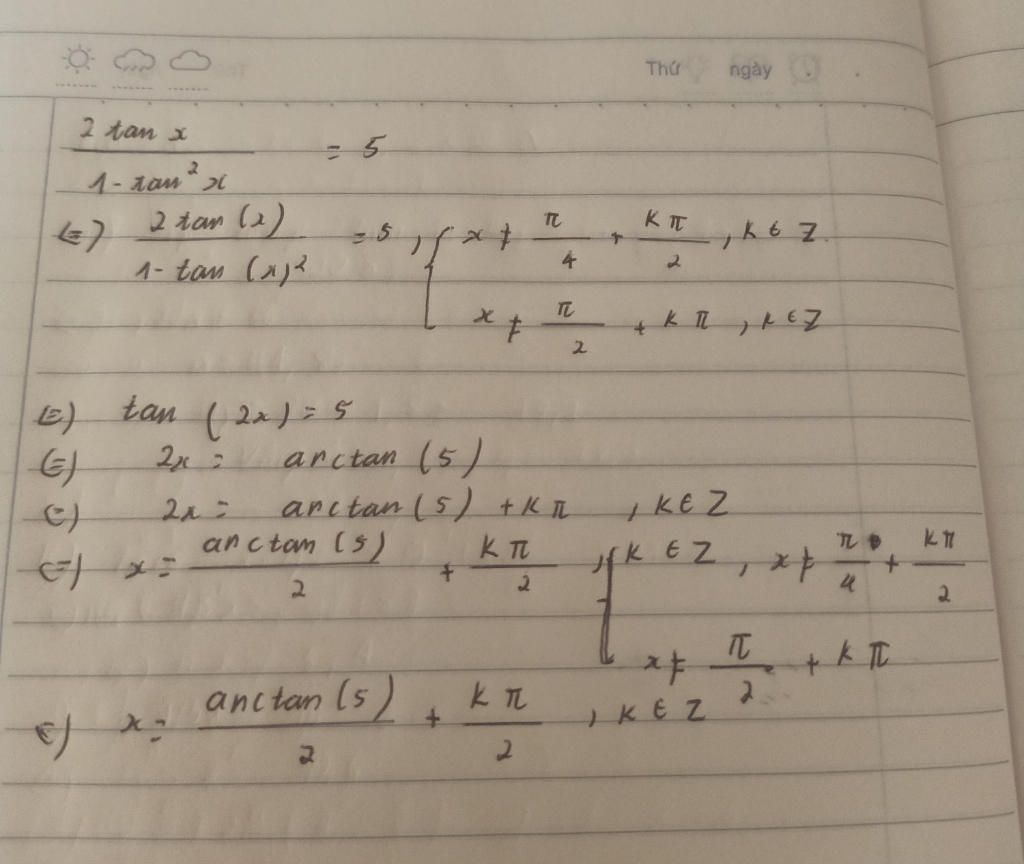 Thứ ngày
2 tan x / 1 - tan² x = 5
(=) 2 tan (x) / 1 - tan (x)² = 5 , { x ≠ π/4 + kπ/2 , k ∈ Z
x ≠ π/2 + k π , k ∈ Z
(=) tan (2x) = 5
(=) 2x = arctan (5)
(=) 2x = arctan (5) + k π , k ∈ Z
(=) x = arctan (5)/2 + kπ/2 , { k ∈ Z , x ≠ π/4 + kπ/2
x ≠ π/2 + k π
(=) x = arctan (5)/2 + kπ/2 , k ∈ Z